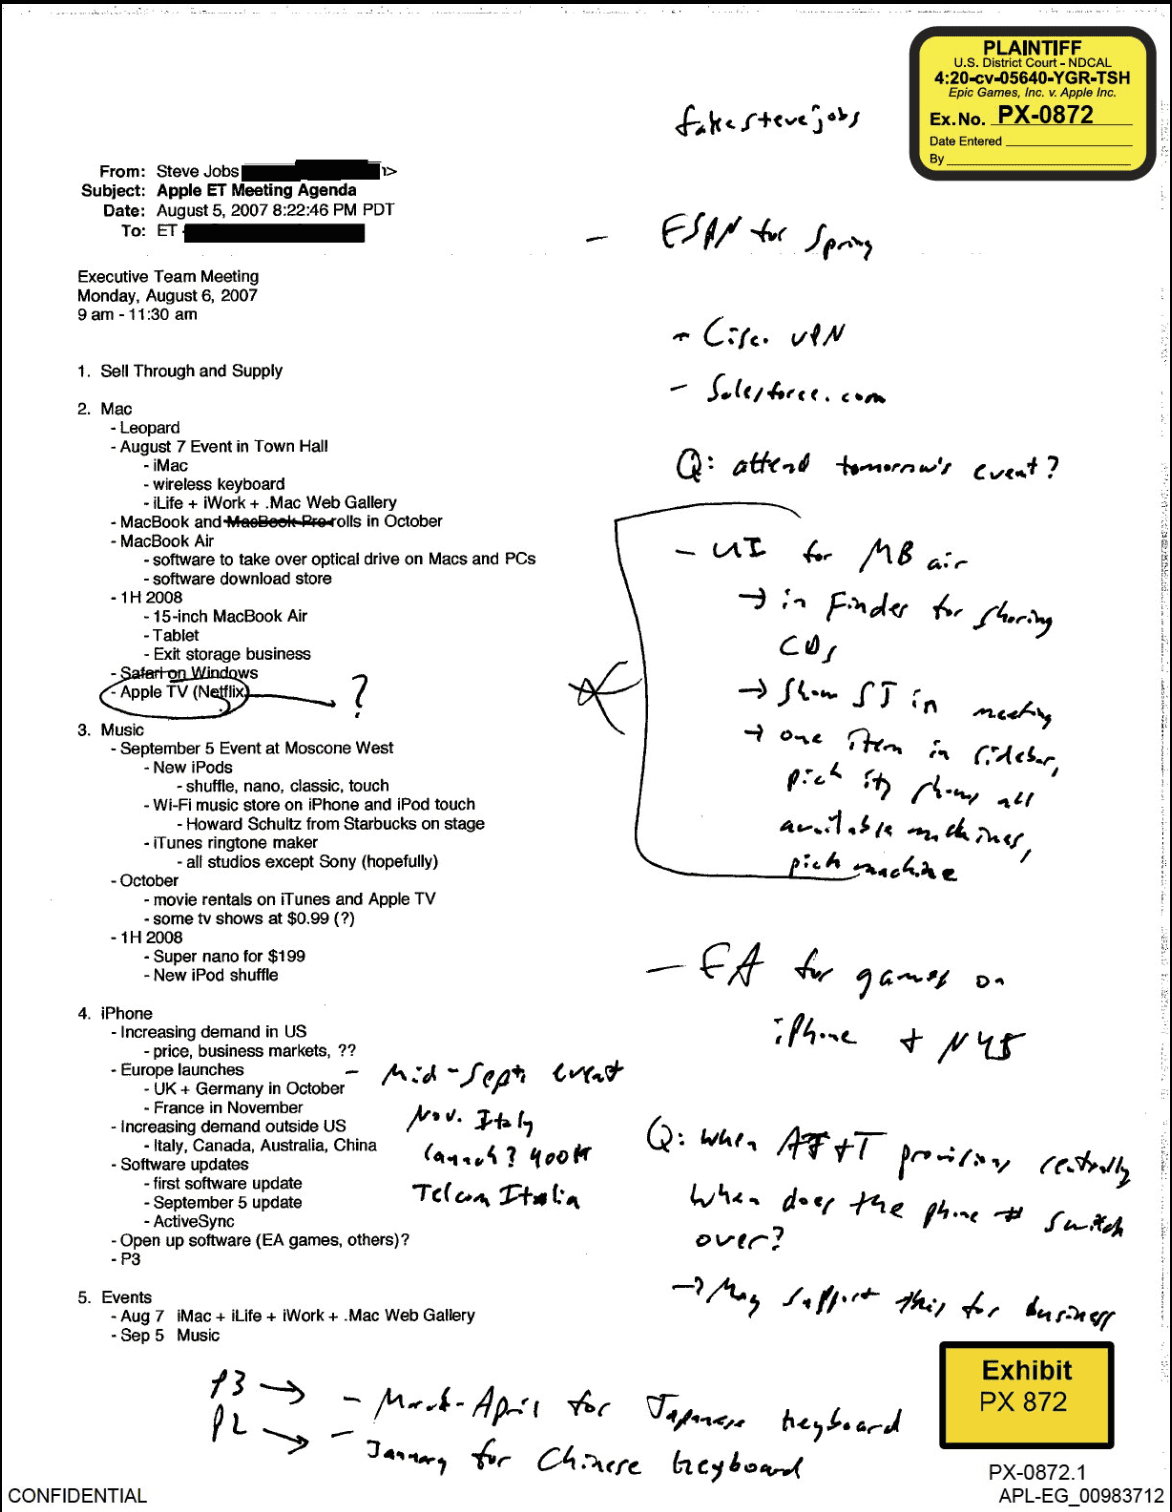 PLAINTIFF
U.S. District Court - NDCAL
4:20-cv-05640-YGR-TSH
Epic Games, Inc. v. Apple Inc.
Ex.No. PX-0872
Date Entered
By
fakestevejobs
From: Steve Jobs >
Subject: Apple ET Meeting Agenda
Date: August 5, 2007 8:22:46 PM PDT
To: ET
- ESPN for Spring
Executive Team Meeting
Monday, August 6, 2007
9 am - 11:30 am
- Cisco VPN
- Salesforce.com
Q: attend tomorrow's event?
1. Sell Through and Supply
2. Mac
- Leopard
- August 7 Event in Town Hall
- iMac
- wireless keyboard
- iLife + iWork + .Mac Web Gallery
- MacBook and MacBook Pro rolls in October
- MacBook Air
- software to take over optical drive on Macs and PCs
- software download store
- 1H 2008
- 15-inch MacBook Air
- Tablet
- Exit storage business
- Safari on Windows
- Apple TV (Netflix) ?
- UI for MB air
→ in Finder for sharing
CDs
→ Show SJ in meeting
→ one item in sidebar,
pick it, shows all
available machines,
pick machine
3. Music
- September 5 Event at Moscone West
- New iPods
- shuffle, nano, classic, touch
- Wi-Fi music store on iPhone and iPod touch
- Howard Schultz from Starbucks on stage
- iTunes ringtone maker
- all studios except Sony (hopefully)
- October
- movie rentals on iTunes and Apple TV
- some tv shows at $0.99 (?)
- 1H 2008
- Super nano for $199
- New iPod shuffle
- EA for games on
iPhone + N45
4. iPhone
- Increasing demand in US
- price, business markets, ??
- Europe launches
- UK + Germany in October
- France in November
- Increasing demand outside US
- Italy, Canada, Australia, China
- Software updates
- first software update
- September 5 update
- ActiveSync
- Open up software (EA games, others)?
- P3
- Mid-Sept. event
Nov. Italy
launch? 400K
Telecom Italia
Q: When AT+T provisions centrally
when does the phone # switch
over?
→ May support this for business
5. Events
- Aug 7 iMac + iLife + iWork + .Mac Web Gallery
- Sep 5 Music
P3 → - March-April for Japanese keyboard
P2 → - January for Chinese keyboard
Exhibit
PX 872
PX-0872.1
CONFIDENTIAL
APL-EG_00983712